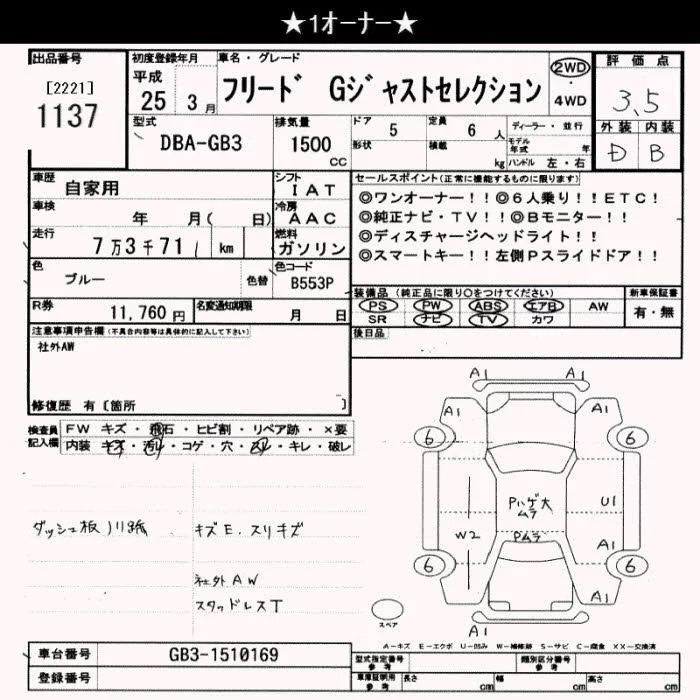 ★1オーナー★
出品番号
[2221]
1137
初度登録年月
平成
25 3 月
車名・グレード
フリード Gジャストセレクション
2WD
・
4WD
評価点
3.5
外装 内装
D B
型式
DBA-GB3
排気量
1500
CC
ドア 5
定員 6 人
形状
積載
kg
ディーラー・並行
モデル
年式 年
ハンドル 左・右
車歴 自家用
シフト
IAT
車検 年 月( 日)
冷房
AAC
走行 7万3千71 km
燃料
ガソリン
色 ブルー 色替
色コード
B553P
R券 11,760 円
名変通知期限 月 日
セールスポイント(正常に機能するものに限ります)
◎ワンオーナー!!◎6人乗り!!ETC!
◎純正ナビ・TV!!◎Bモニター!!
◎ディスチャージヘッドライト!!
◎スマートキー!!左側Pスライドドア!!
装備品(純正品に限り○をつけてください)
新車保証書
PS PW ABS エアB AW
SR ナビ TV カワ
有・無
後日品
注意事項申告欄(不具合内容等は具体的に記入して下さい)
社外AW
修復歴 有〔箇所 〕
検査員
記入欄
FW キズ・飛石・ヒビ割・リペア跡・×要
内装 キズ・汚れ・コゲ・穴・スレ・キレ・破レ
ダッシュ板
キズE. スリキズ
社外AW
スタッドレスT
A1 A1
A1 A1
6 6
Pハゲ大
ムラ
U1
W2
Pムラ
A1
6 6
A1
A1
スペア
A-キズ E-エクボ U-凹み W-補修跡 S-サビ C-腐食 XX-交換済
車台番号 GB3-1510169
登録番号
型式指定番号
参考
類別区分番号
参考
車庫証明用
参考
長さ cm
幅 cm
高さ cm